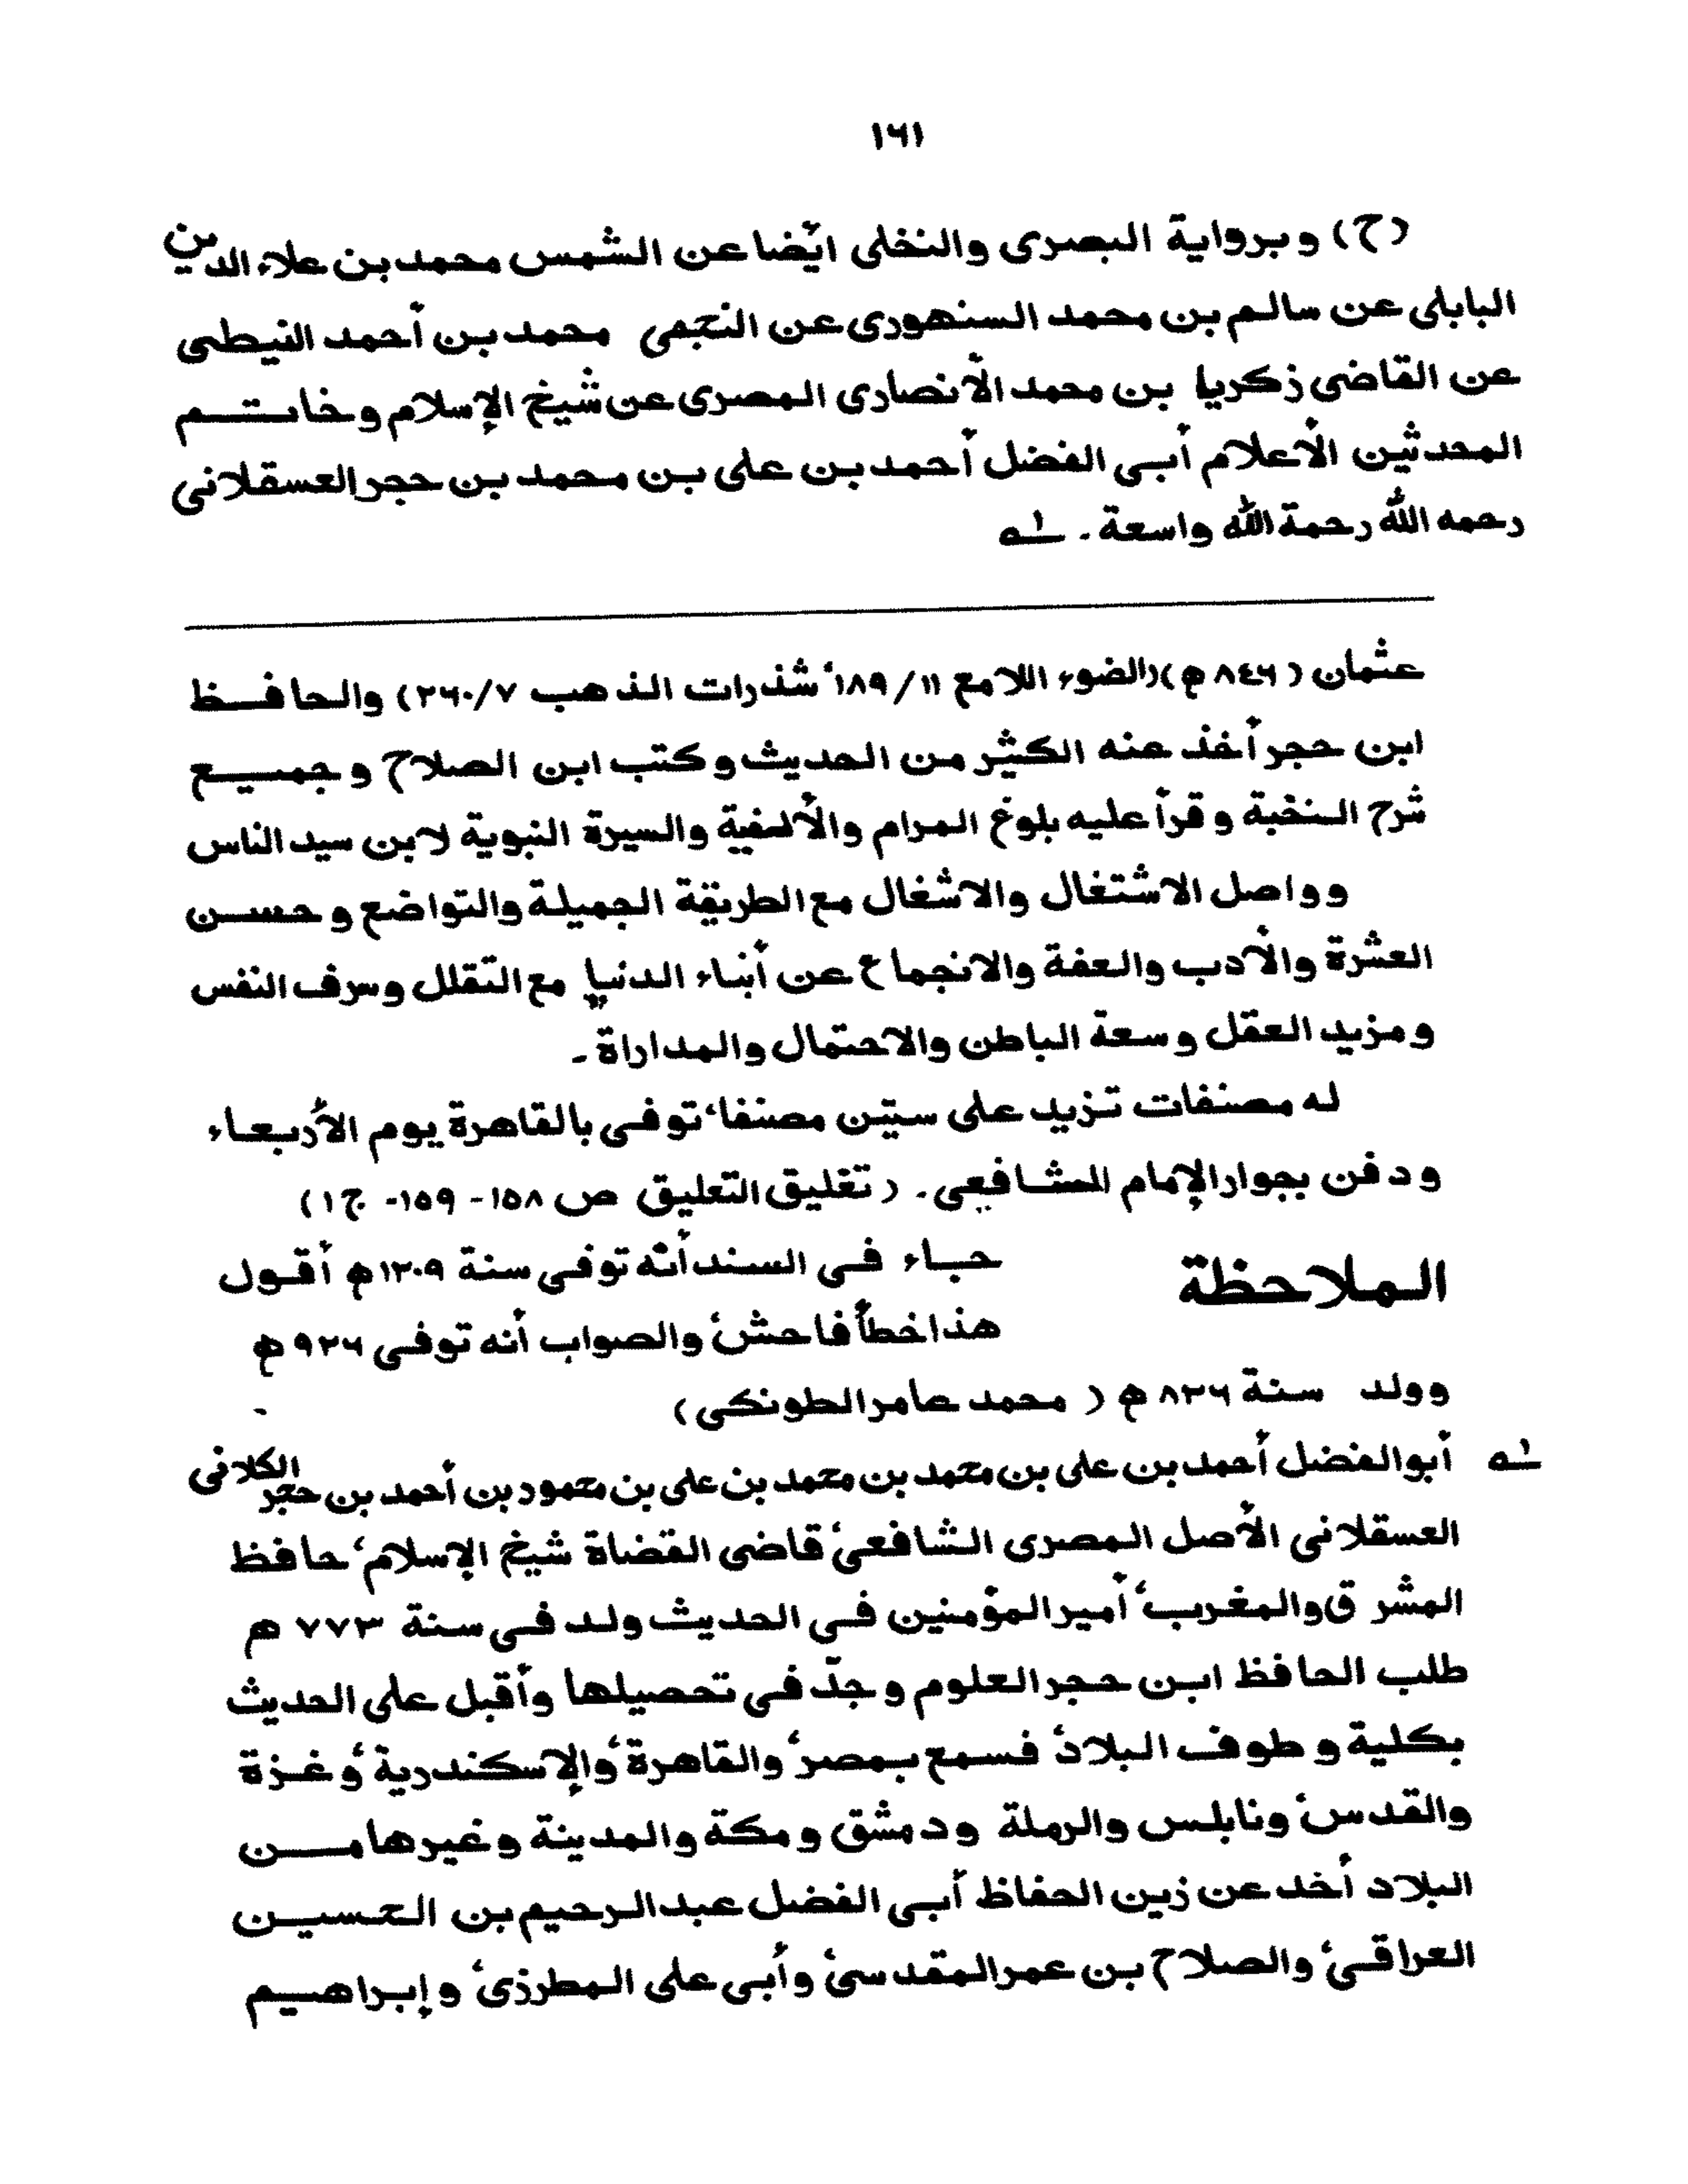 ١٦١
(ح) و برواية البصرى والنخلى ائضا عن الشمس محمد بن علاء الدين
البابلى عن سالم بن محمد السنهورى عن النجمى محمد بن أحمد النيطى
عن القاضى زكريا بن محمد الأنصارى المصرى عن شيخ الإسلام و خاتم
المحدثين الأعلام أبى الفضل أحمد بن على بن محمد بن حجر العسقلانى
رحمه الله رحمة الله واسعة . له
عثمان ( ٨٤٦ ھ ) (الضوء اللامع ١١/ ١٨٩، شذرات الذهب ٧/ ٢٦٠) والحافظ
ابن حجر أخذ عنه الكثير من الحديث و كتب ابن الصلاح و جميع
شرح النخبة و قرأ عليه بلوغ المرام والألفية والسيرة النبوية لابن سيد الناس
و واصل الاشتغال والاشغال مع الطريقة الجميلة والتواضع و حسن
العشرة والأدب والعفة والانجماع عن أبناء الدنيا مع التقلل وسرف النفس
و مزيد العقل و سعة الباطن والاحتمال والمداراة ـ
له مصنفات تزيد على ستين مصنفا، توفى بالقاهرة يوم الأربعاء
و دفن بجوار الإمام الشافعى . ( تغليق التعليق ص ١٥٨ - ١٥٩- ج ١ )
الملاحظة جاء فى السند أنه توفى سنة ١٣٠٩ھ أقول
هذا خطأ فاحش، والصواب أنه توفى ٩٢٦ ھ
وولد سنة ٨٢٦ ھ ( محمد عامر الطونكى ) -
له أبو الفضل أحمد بن على بن محمد بن محمد بن على بن محمود بن أحمد بن حجر الكلانى
العسقلانى الأصل المصرى الشافعى، قاضى القضاة شيخ الإسلام، حافظ
المشرق والمغرب، أمير المؤمنين فى الحديث ولد فى سنة ٧٧٣ ھ
طلب الحافظ ابن حجر العلوم و جدّ فى تحصيلها وأقبل على الحديث
بكلية و طوف البلاد، فسمع بمصر، والقاهرة، والإسكندرية، و غزة
والقدس، ونابلس والرملة ودمشق و مكة والمدينة و غيرها من
البلاد أخد عن زين الحفاظ أبى الفضل عبد الرحيم بن الحسين
العراقى، والصلاح بن عمر المقدسى، وأبى على المطرزى، و إبراهيم